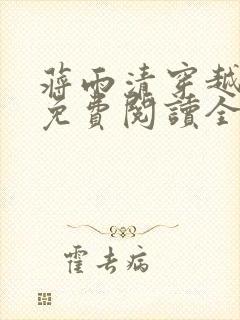 蔣雨清穿越
免費閱讀全
霍去病